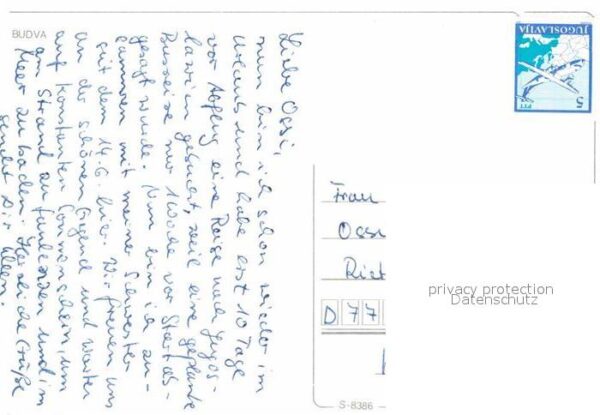 BUDVA
Liebe Ossi,
nun bin ich schon wieder im
Urlaub und habe erst 10 Tage
vor Abflug eine Reise nach Jugos-
lawien gebucht, weil eine geplante
Busreise nur 1 Woche vor Start ab-
gesagt wurde. Nun bin ich zu-
sammen mit meiner Schwester
seit dem 14.6. hier. Wir freuen uns
an der schönen Gegend und warten
auf konstanten Sonnenschein, um
am Strand zu faulenzen und im
Meer zu baden. Herzliche Grüße
sendet Dir
JUGOSLAVIJA
PTT
5
Frau
Ossi
D 77
privacy protection
Datenschutz
S-8386